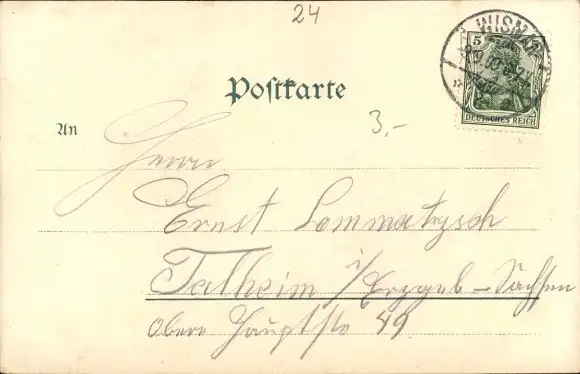 24
WISMAR
5
DEUTSCHES REICH
Postkarte
3,-
An
Herrn
Ernst Lommatzsch
Talheim i/Erzgeb - Sachsen
Obere Hauptstr 49